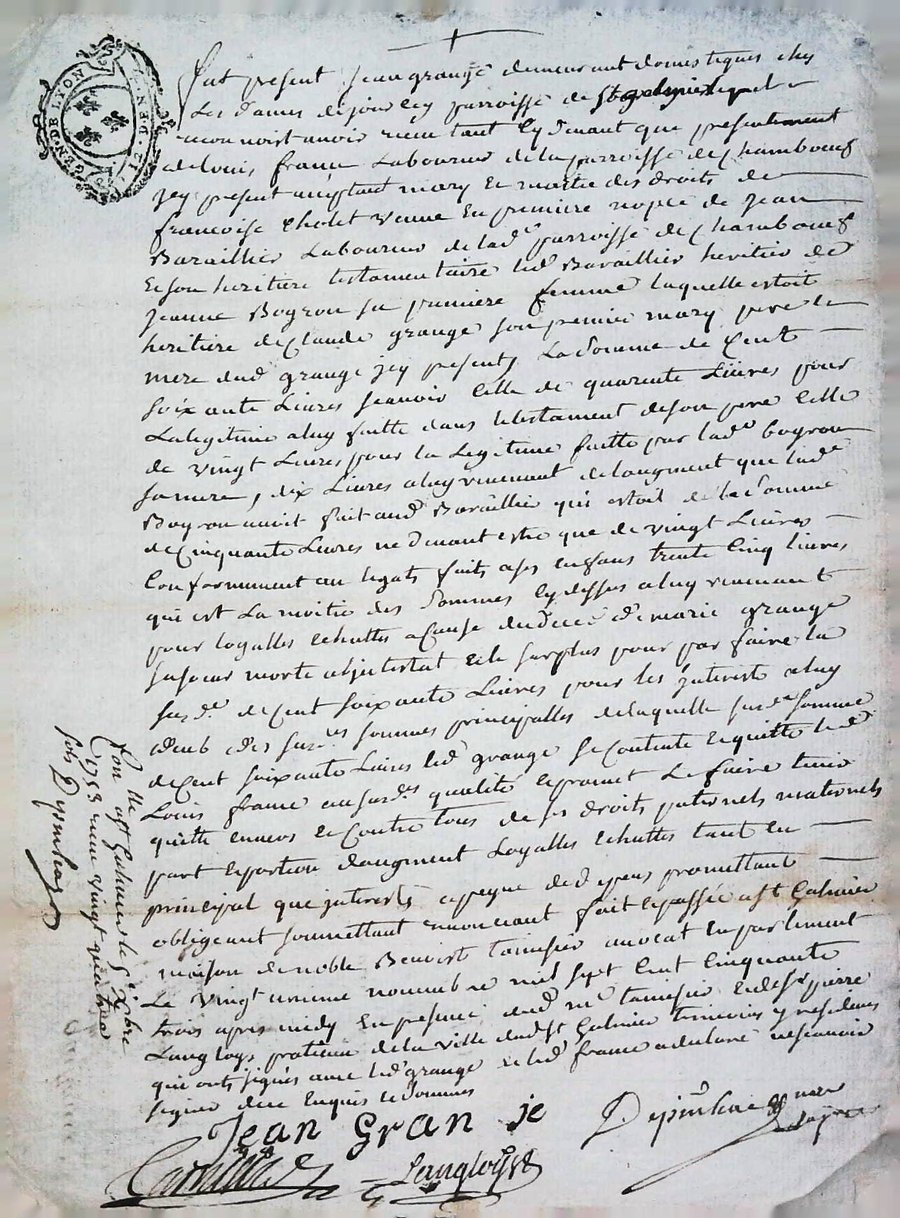 GEN. DE LYON
Fut présent Jean grange demeurant domestiques chez
Les dames de jourcey parroisse de st galmier lequel
reconnoist avoir receu tant cy devant que presentement
de louis france Laboureur de la parroisse de Chambœuf
jcy present acceptant mary et maitre des droits de
francoise tholet veuve en premiere nopce de Jean
Baraillier Laboureur de lad.e parroisse de Chambœuf
et son heritiere testamentaire led Baraillier heritier de
jeanne Boyron sa premiere femme laquelle estoit
heritiere de Claude grange son premier mary pere et
mere dud grange jcy present, La Somme de Cent
soixante Livres scavoir Celle de quarente Livres pour
La legitime a luy faitte dans le testament de son pere Celle
de vingt Livres pour la Legitime faitte par lad.e boyron
sa mere, dix Livres a luy revenant de laugment que lad.e
Boyron avoit fait aud Baraillier qui estoit de la Somme
de Cinquante Livres ne devant estre que de vingt Livres
Conformement au legats faits a ses enfans trente Cinq livres
qui est La moitié des Sommes cy dessus a luy revenant
pour loyalles echuttes a Cause du deces de marie grange
sa soeur morte abjntestat et le surplus pour parfaire la
sus d.e de Cent soixante Livres pour les jnterests a luy
deub des sus.es sommes principalles de laquelle sus d.e Somme
de Cent soixante Livres led grange se Contente et quitte led
Louis france aux sus d.es qualité et promet Le faire tenir
quitte envers et Contre tous de ses droits paternels maternels
part et portion daugment Loyalles echuttes tant en
principal que jnterests a peyne de depens promettant
obligeant soumettant renonceant fait et passée a st Galmier
maison de noble Benoist tamisier avocat en parlement
Le vingt unieme novembre mil sept Cent Cinquante
trois apres midy en presence dud m.e tamisier et de s.r pierre
Langloys praticien de la ville dud st Galmier temoins y residans
qui onts signés avec led grange et led france a declaré ne scavoir
signer de ce enquis et sommes
Jean Gran je
Langloys
Con.lle a st Galmier le 5 xbre
1753 receu vingt quatre
sols